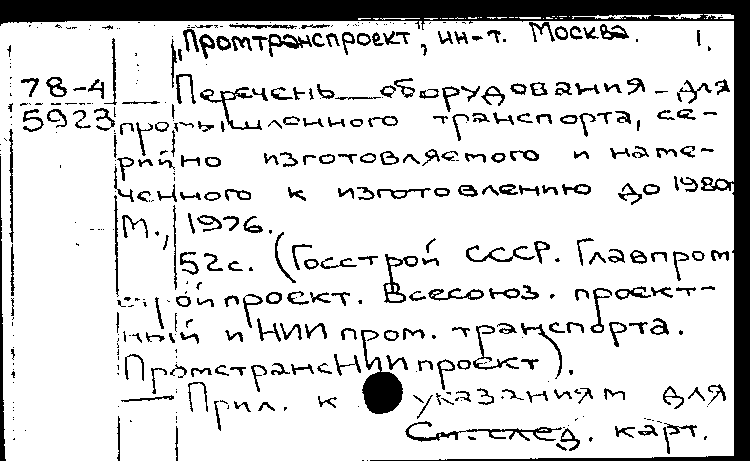 „Промтранспроект", ин-т. Москва. 1.
78-4
5923
Перечень оборудования для
промышленного транспорта, се-
рийно изготовляемого и наме-
ченного к изготовлению до 1980г.
М., 1976.
52с. (Госстрой СССР. Главпром-
стройпроект. Всесоюз. проект-
ный и НИИ пром. транспорта.
ПромтрансНИИпроект).
Прил. к указаниям для
См. след. карт.